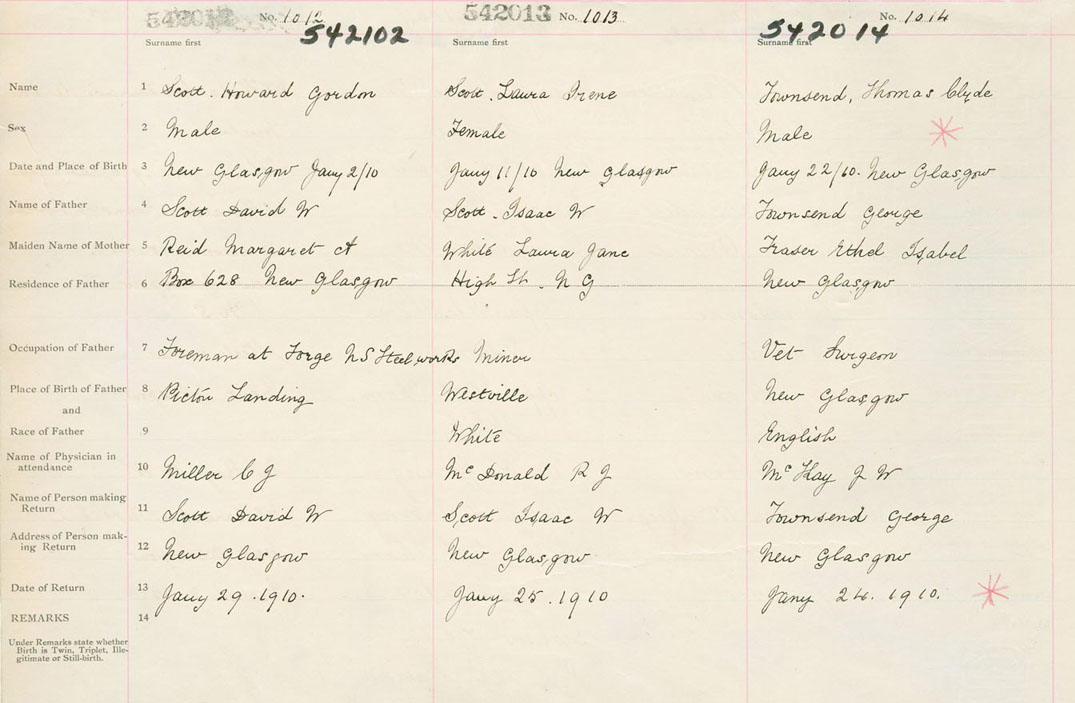 542013 No. 1012 542013 No. 1013 No. 1014
542102 542014
Surname first Surname first Surname first
Name 1 Scott. Howard Gordon Scott. Laura Irene Townsend, Thomas Clyde
Sex 2 Male Female Male
Date and Place of Birth 3 New Glasgow Jany 2/10 Jany 11/10 New Glasgow Jany 22/10. New Glasgow
Name of Father 4 Scott David W Scott. Isaac W Townsend George
Maiden Name of Mother 5 Reid Margaret A White Laura Jane Fraser Ethel Isabel
Residence of Father 6 Box 628 New Glasgow High St. N G New Glasgow
Occupation of Father 7 Foreman at Forge N S Steel works Miner Vet Surgeon
Place of Birth of Father 8 Pictou Landing Westville New Glasgow
and
Race of Father 9 White English
Name of Physician in
attendance 10 Miller C J McDonald R J McKay J W
Name of Person making
Return 11 Scott David W Scott Isaac W Townsend George
Address of Person mak-
ing Return 12 New Glasgow New Glasgow New Glasgow
Date of Return 13 Jany 29. 1910. Jany 25. 1910 Jany 24. 1910.
REMARKS 14
Under Remarks state whether
Birth is Twin, Triplet, Ille-
gitimate or Still-birth.